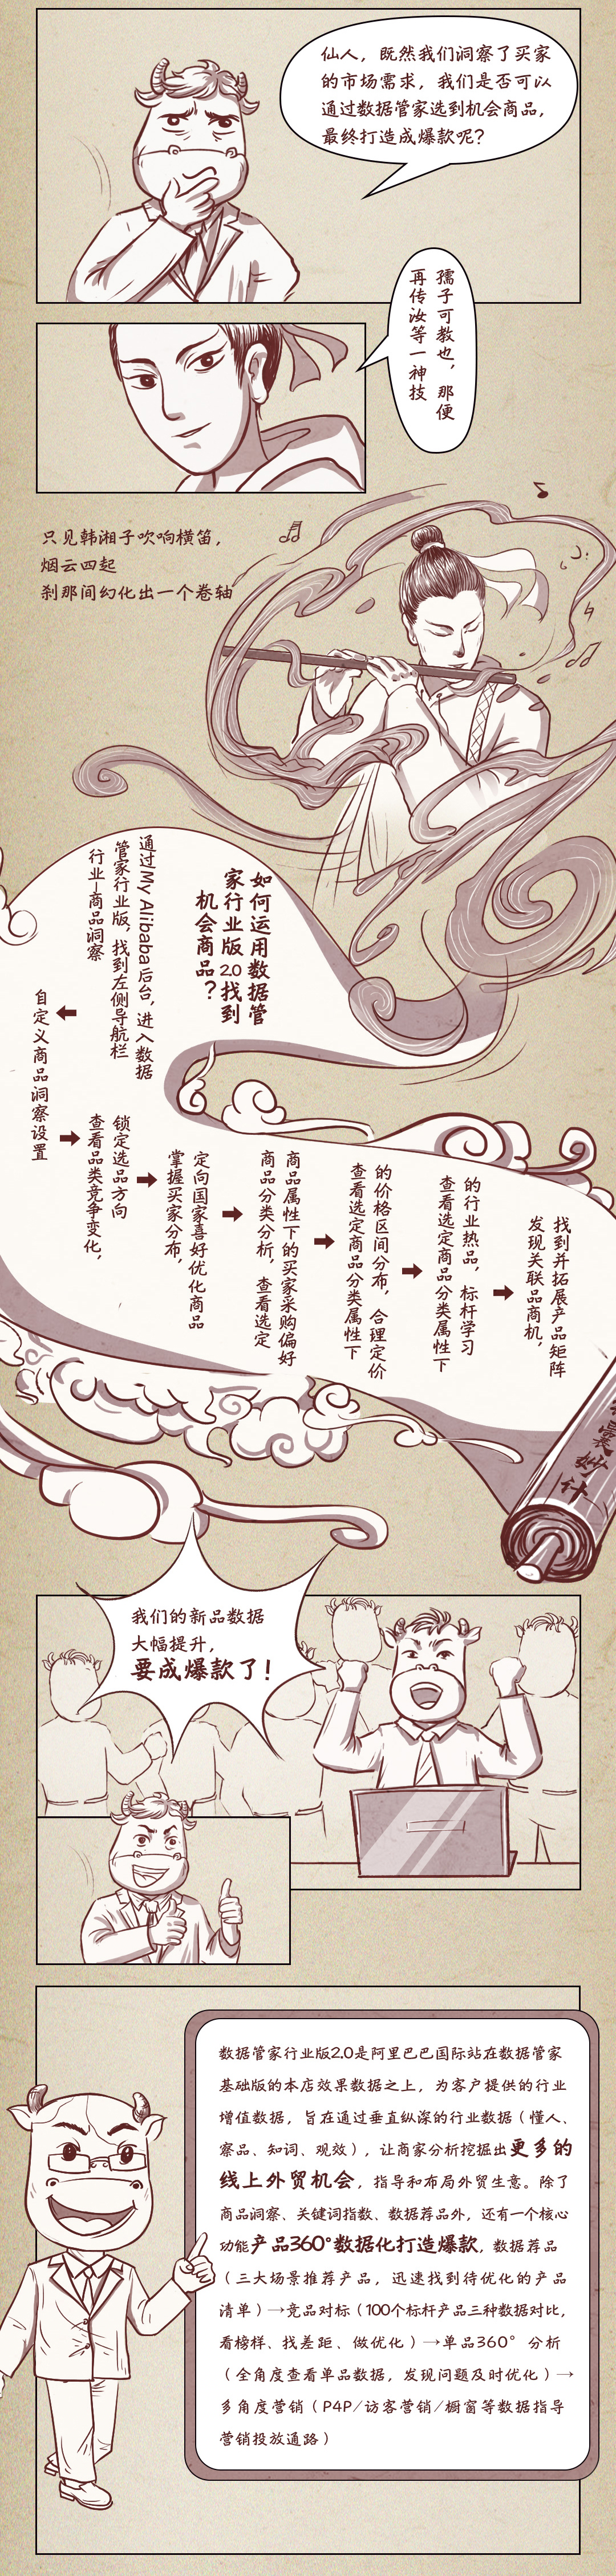 仙人，既然我们洞察了买家
的市场需求，我们是否可以
通过数据管家选到机会商品，
最终打造成爆款呢？
孺子可教也，那便
再传汝等一神技
只见韩湘子吹响横笛，
烟云四起
刹那间幻化出一个卷轴
如何运用数据管
家行业版2.0找到
机会商品？
通过My Alibaba后台，进入数据
管家行业版，找到左侧导航栏
行业—商品洞察
自定义商品洞察设置
锁定选品方向
查看品类竞争变化，
定向国家喜好优化商品
掌握买家分布，
商品属性下的买家采购偏好
商品分类分析，查看选定
的价格区间分布，合理定价
查看选定商品分类属性下
的行业热品，标杆学习
查看选定商品分类属性下
找到并拓展产品矩阵
发现关联品商机，
囊妙计
我们的新品数据
大幅提升，
要成爆款了！
数据管家行业版2.0是阿里巴巴国际站在数据管家
基础版的本店效果数据之上，为客户提供的行业
增值数据，旨在通过垂直纵深的行业数据（懂人、
察品、知词、观效），让商家分析挖掘出更多的
线上外贸机会，指导和布局外贸生意。除了
商品洞察、关键词指数、数据荐品外，还有一个核心
功能产品360°数据化打造爆款，数据荐品
（三大场景推荐产品，迅速找到待优化的产品
清单）→竞品对标（100个标杆产品三种数据对比，
看榜样、找差距、做优化）→单品360°分析
（全角度查看单品数据，发现问题及时优化）→
多角度营销（P4P/访客营销/橱窗等数据指导
营销投放通路）